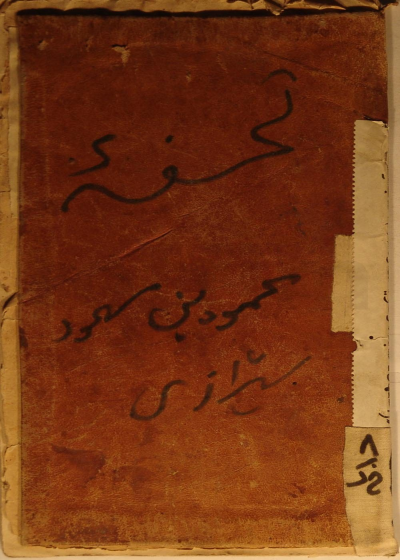 تحفهٔ
محمود بن مسعود
شیرازی